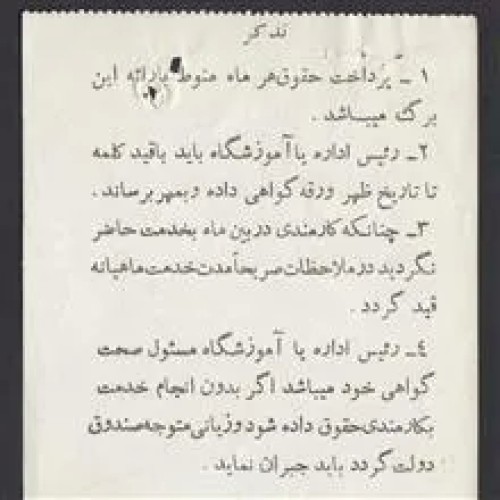 تذکر
۱ ـ پرداخت حقوق هر ماه منوط بارائه این
برگ میباشد .
۲ـ رئیس اداره یا آموزشگاه باید باقید کلمه
تا تاریخ ظهر ورقه گواهی داده و بمهر برساند .
۳ـ چنانکه کارمندی در بین ماه بخدمت حاضر
نگردید در ملاحظات صریحاً مدت خدمت ماهیانه
قید گردد .
٤ـ رئیس اداره یا آموزشگاه مسئول صحت
گواهی خود میباشد اگر بدون انجام خدمت
بکارمندی حقوق داده شود و زیانی متوجه صندوق
دولت گردد باید جبران نماید .